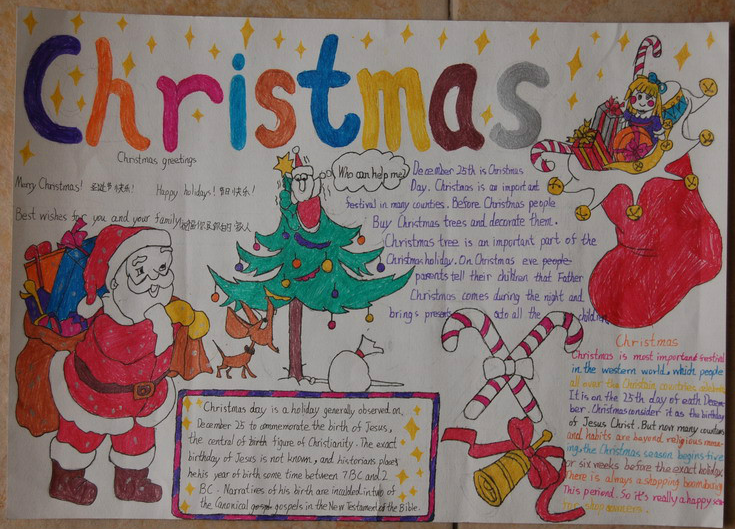 Christmas
Christmas greetings
Merry Christmas! 圣诞节快乐! Happy holidays! 节日快乐!
Best wishes for you and your family
Who can help me?
December 25th is Christmas
Day. Christmas is an important
festival in many countries. Before Christmas people
Buy Christmas trees and decorate them.
Christmas tree is an important part of the
Christmas holiday. On Christmas eve people
parents tell their children that Father
Christmas comes during the night and
brings presents to all the children
Christmas
Christmas is most important festival
in the western world. which people
all over the countries
It is on the 25th day of eath Decem-
ber. Christmas consider it as the birthday
of Jesus Christ. But now many countries
and habits are beyond religious mea-
ing, the Christmas season begins five
or six weeks before the exact holiday
There is always a stopping boom during
This periend. So it's really a happy
Christmas day is a holiday generally observed on
December 25 to commemorate the birth of Jesus,
the central of birth figure of Christianity. The exact
birthday of Jesus is not known, and historians places
he his year of birth some time between 7 BC and 2
BC. Narratives of his birth are in two of
the Canonical gospels in the New Testament of the Bible.